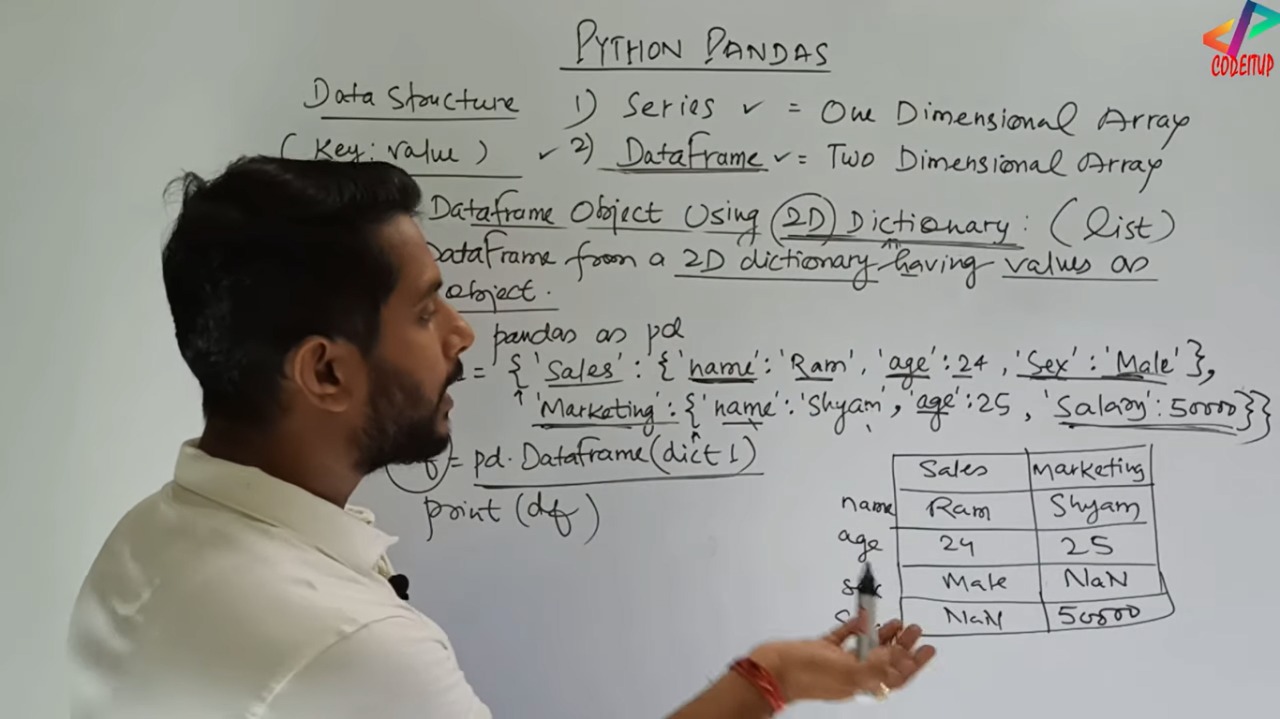 PYTHON PANDAS
CODEITUP
Data Structure 1) Series ✓ = One Dimensional Array
(Key: value) ✓ 2) DataFrame ✓ = Two Dimensional Array
Dataframe Object Using 2D Dictionary: (list)
DataFrame from a 2D dictionary having values as
object.
pandas as pd
= {'Sales': {'name': 'Ram', 'age': 24, 'Sex': 'Male'},
'Marketing': {'name': 'Shyam', 'age': 25, 'Salary': 50000}}
= pd.Dataframe(dict1)
print(df)
Sales Marketing
name Ram Shyam
age 24 25
Male NaN
NaN 50000